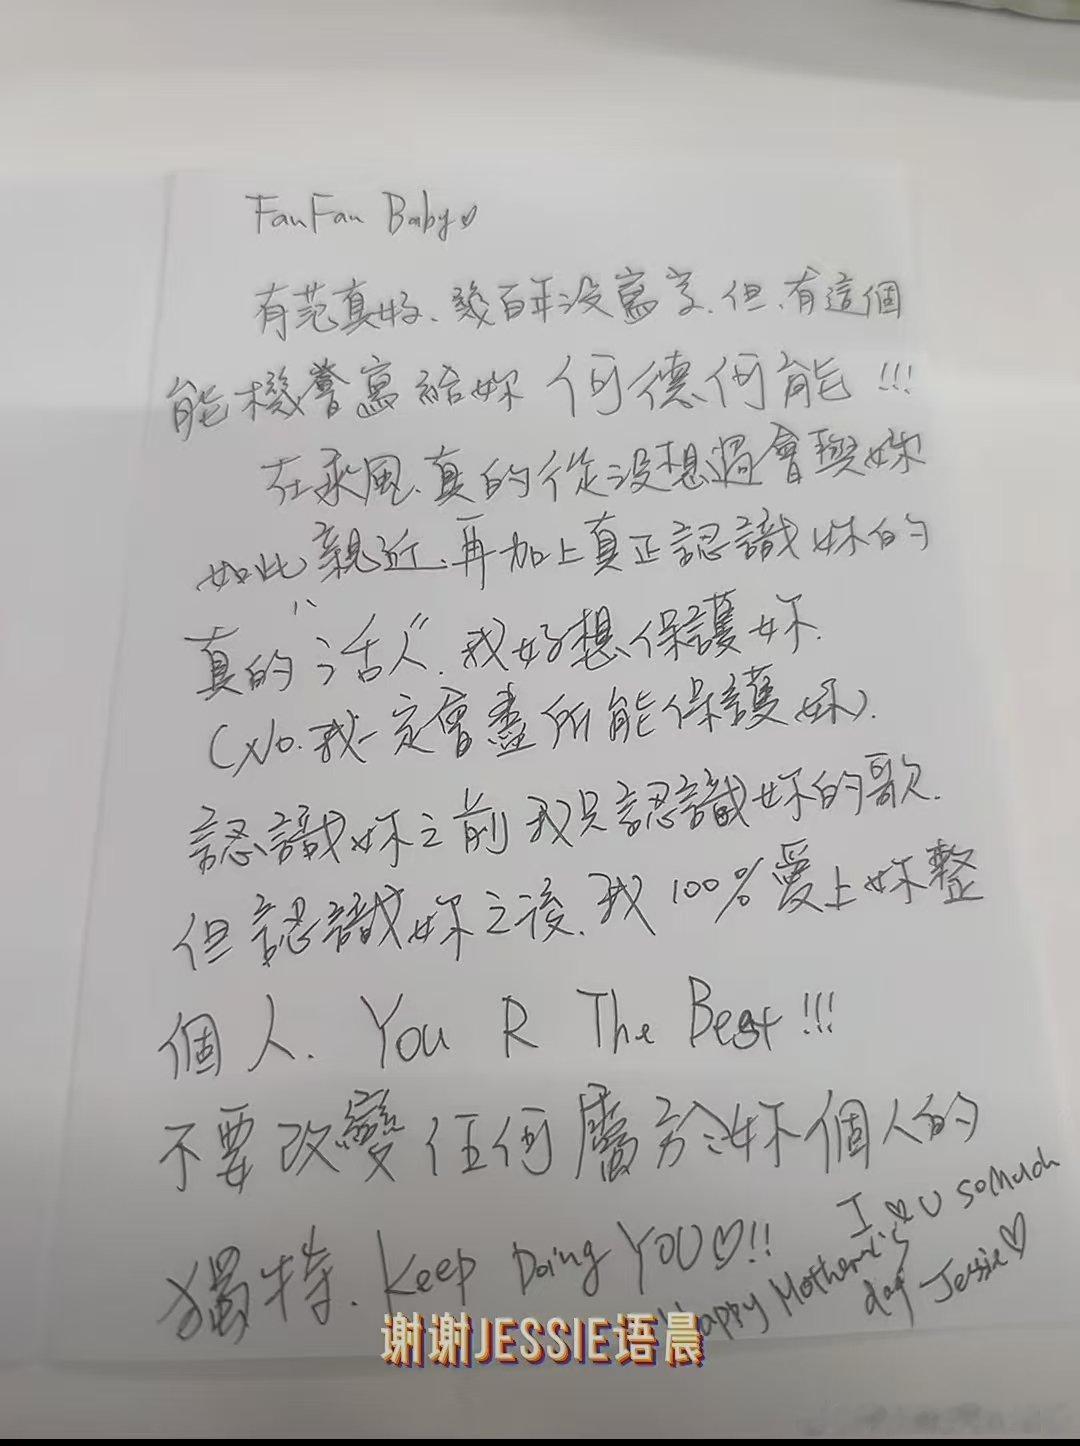 FanFan Baby♡
有范真好、幾百年沒寫字.但.有這個
能機會寫給妳 何德何能!!!
在乘風.真的從沒想過會與妳
如此親近.再加上真正認識妳的
真的"活人".我好想保護妳.
(No.我一定會盡所能保護妳).
認識妳之前我只認識妳的歌.
但認識妳之後.我100%愛上妳整
個人. You R The Best!!!
不要改變任何屬於妳個人的
獨特. Keep Doing YOU♡!!
I ♡ U so Much
Happy Mother's
day Jessie♡
谢谢JESSIE语晨